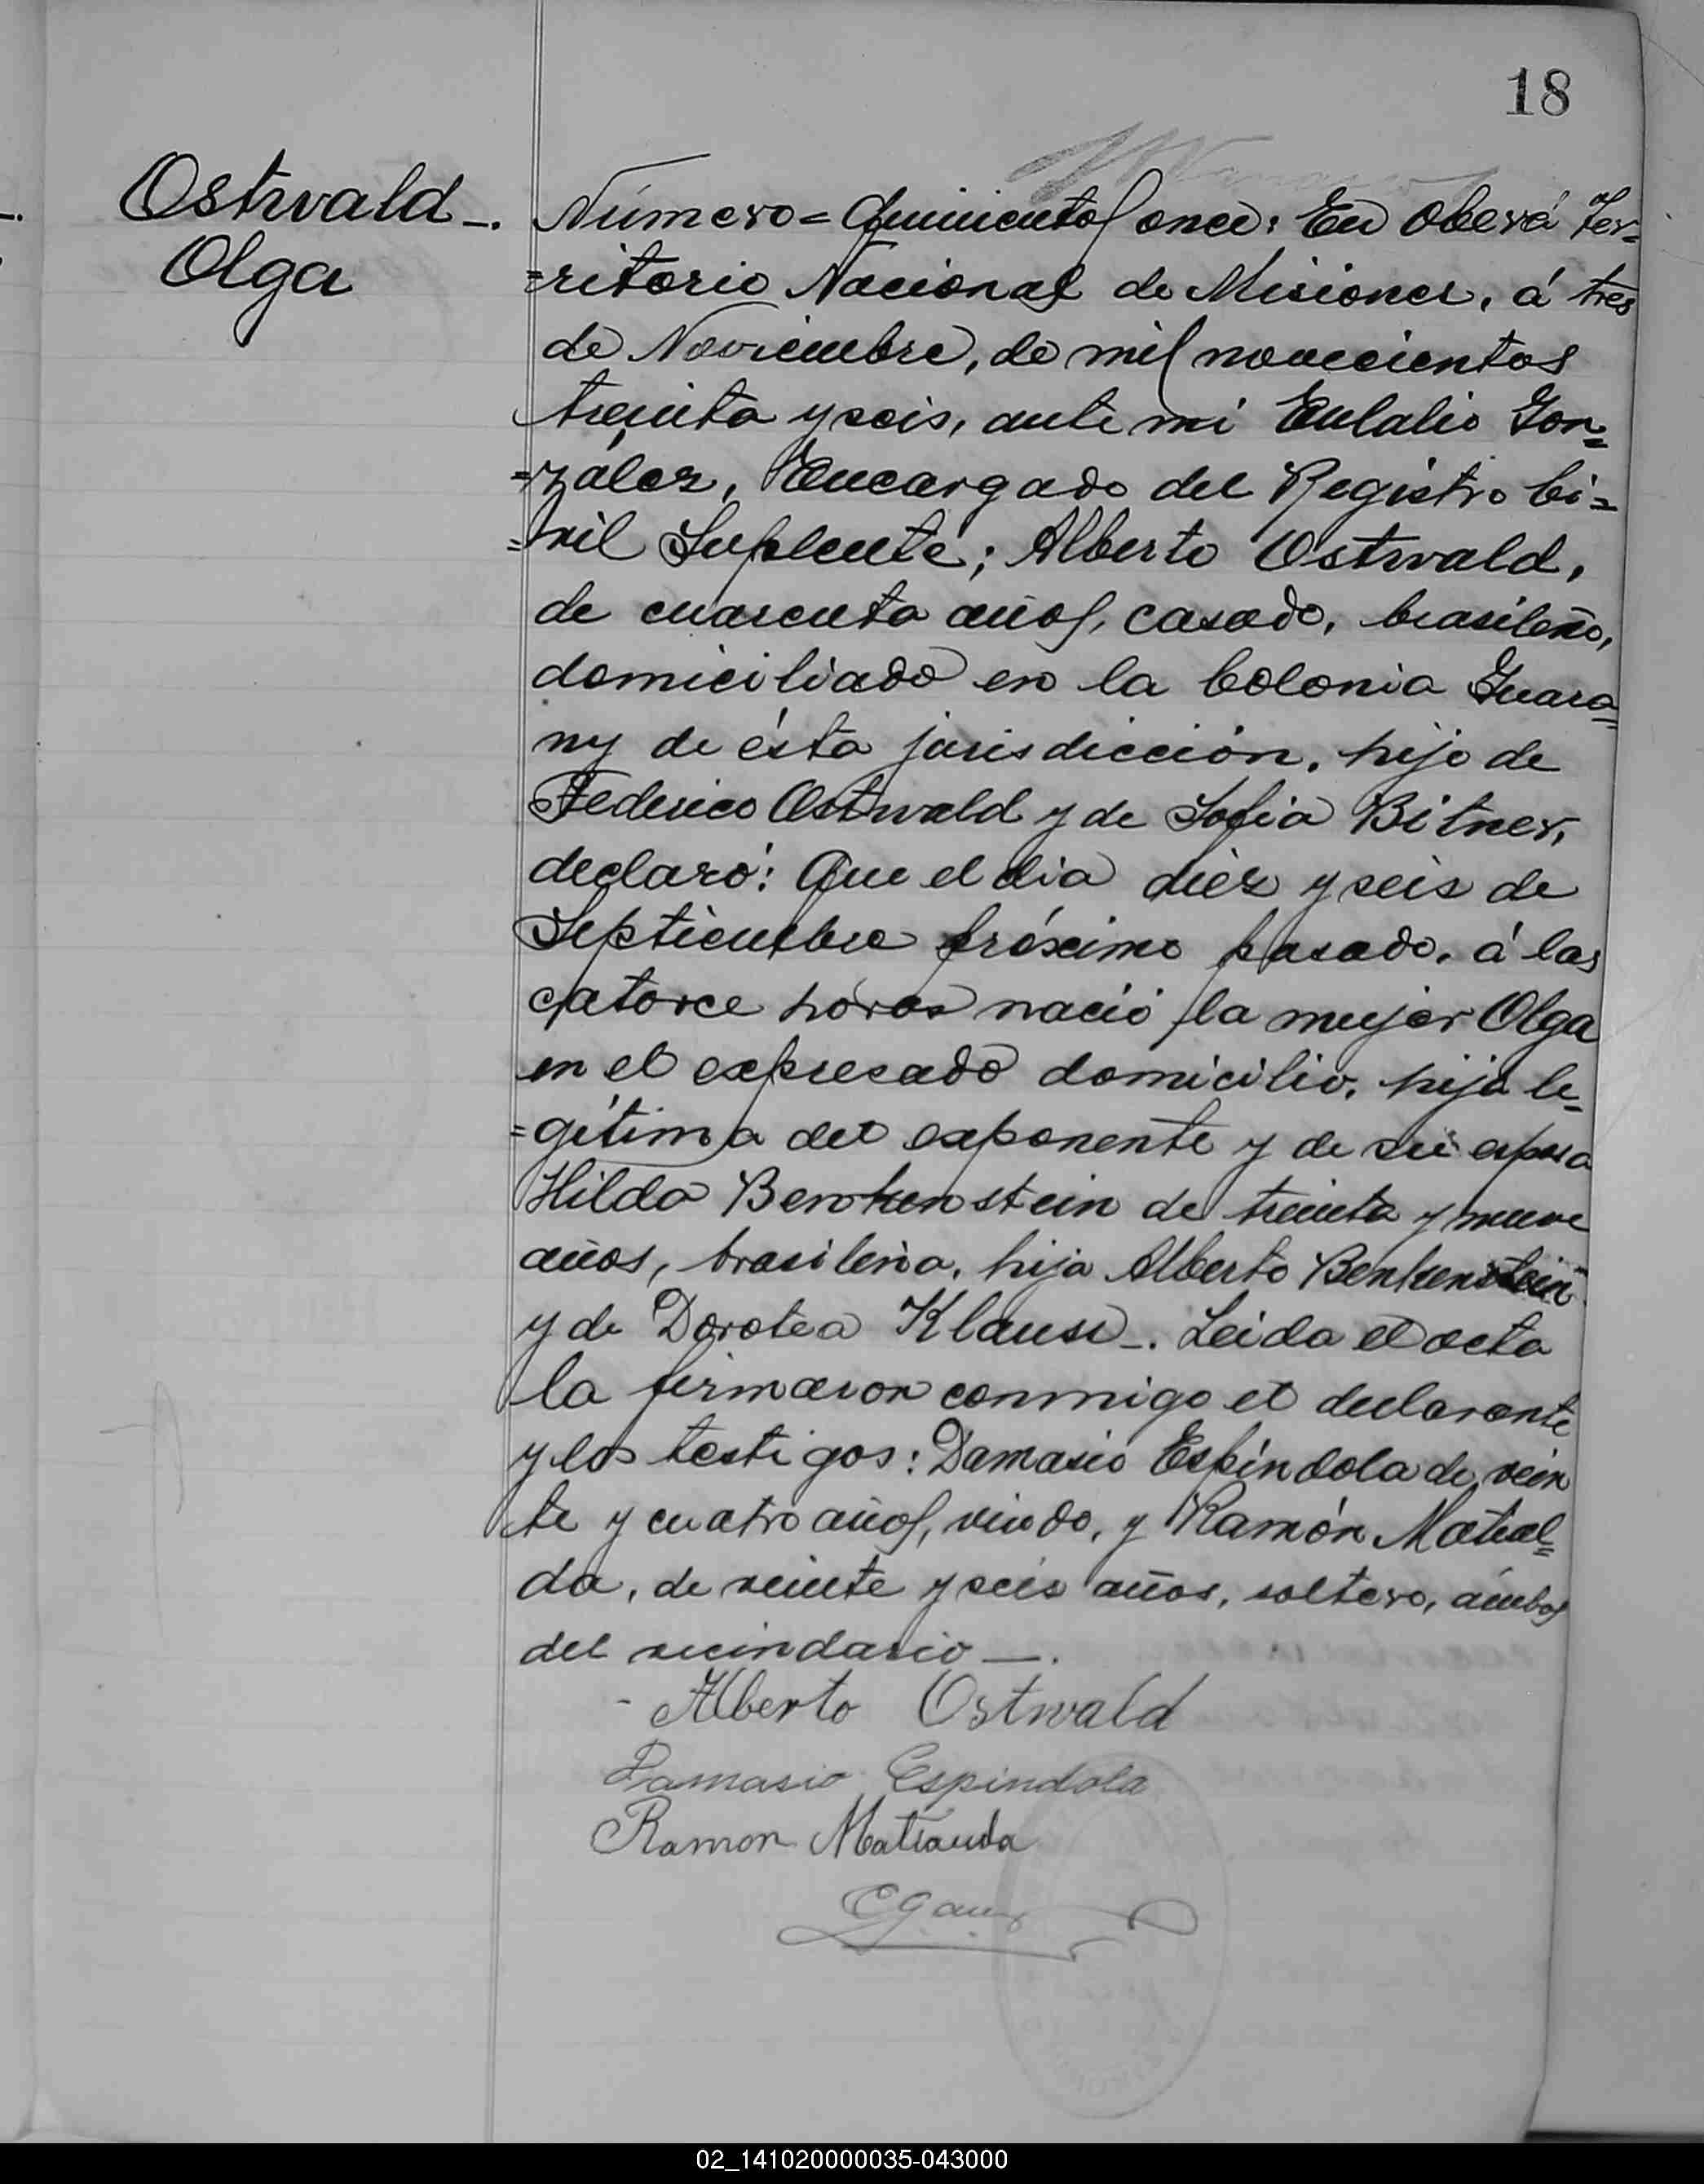 18
Ostwald-.
Olga
Número = Quinientos once: En Oberá Ter=
=ritorio Nacional de Misiones, á tres
de Noviembre, de mil novecientos
treinta y seis, ante mi Eulalio Gon=
=zález, Encargado del Registro Ci=
=vil Suplente; Alberto Ostwald,
de cuarenta años, casado, brasileño,
domiciliado en la Colonia Guara=
ny de ésta jurisdicción, hijo de
Federico Ostwald y de Sofia Bitner,
declaró: Que el dia diez y seis de
Septiembre próximo pasado, á las
catorce horas nació la mujer Olga
en el expresado domicilio, hija le=
=gítima del exponente y de su esposa
Hilda Benkenstein de treinta y nueve
años, brasileña, hija Alberto Benkenstein
y de Dorotea Klause-. Leida el acta
la firmaron conmigo el declarante
y los testigos: Damasio Espíndola de vein
te y cuatro años, viudo, y Ramón Matial=
da, de veinte y seis años, soltero, ámbos
del vecindario-.
- Alberto Ostwald
Damasio Espindola
Ramon Matiauda
02_141020000035-043000